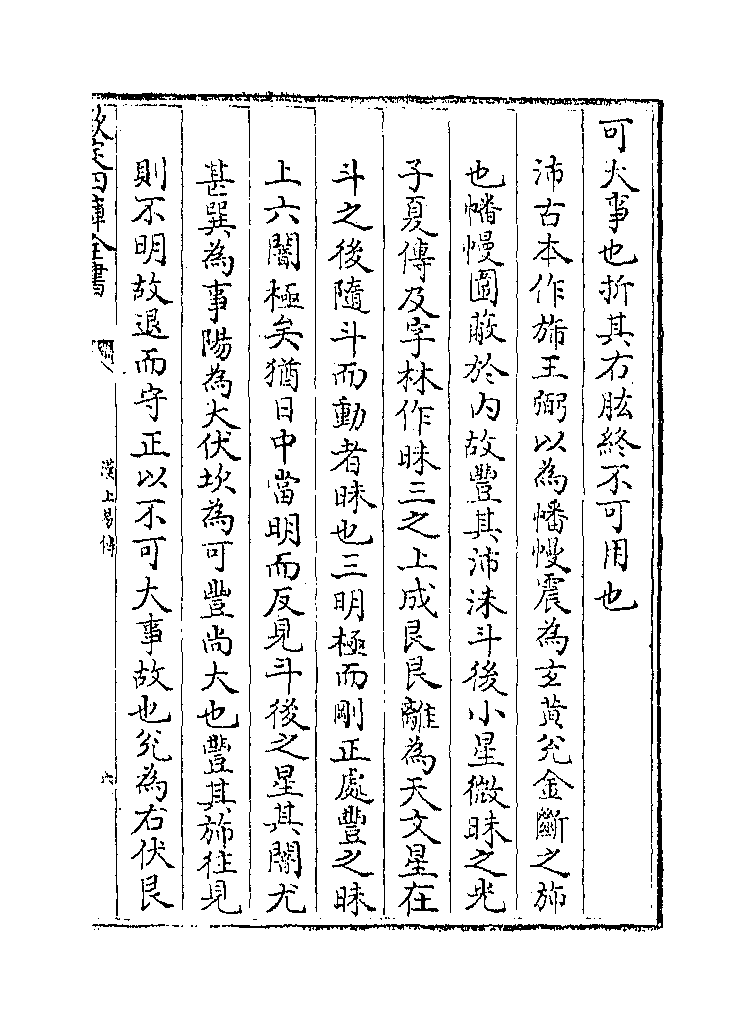 可大事也折其右肱終不可用也
沛古本作旆王弼以為幡幔震為玄黃兊金斷之旆
也幡幔圍蔽於内故豐其沛沬斗後小星微昧之光
子夏傳及字林作昧三之上成艮艮離為天文星在
斗之後隨斗而動者昧也三明極而剛正處豐之昧
上六闇極矣猶日中當明而反見斗後之星其闇尤
甚巽為事陽為大伏坎為可豐尚大也豐其旆往見
則不明故退而守正以不可大事故也兊為右伏艮
欽定四庫全書
漢上易傳
六